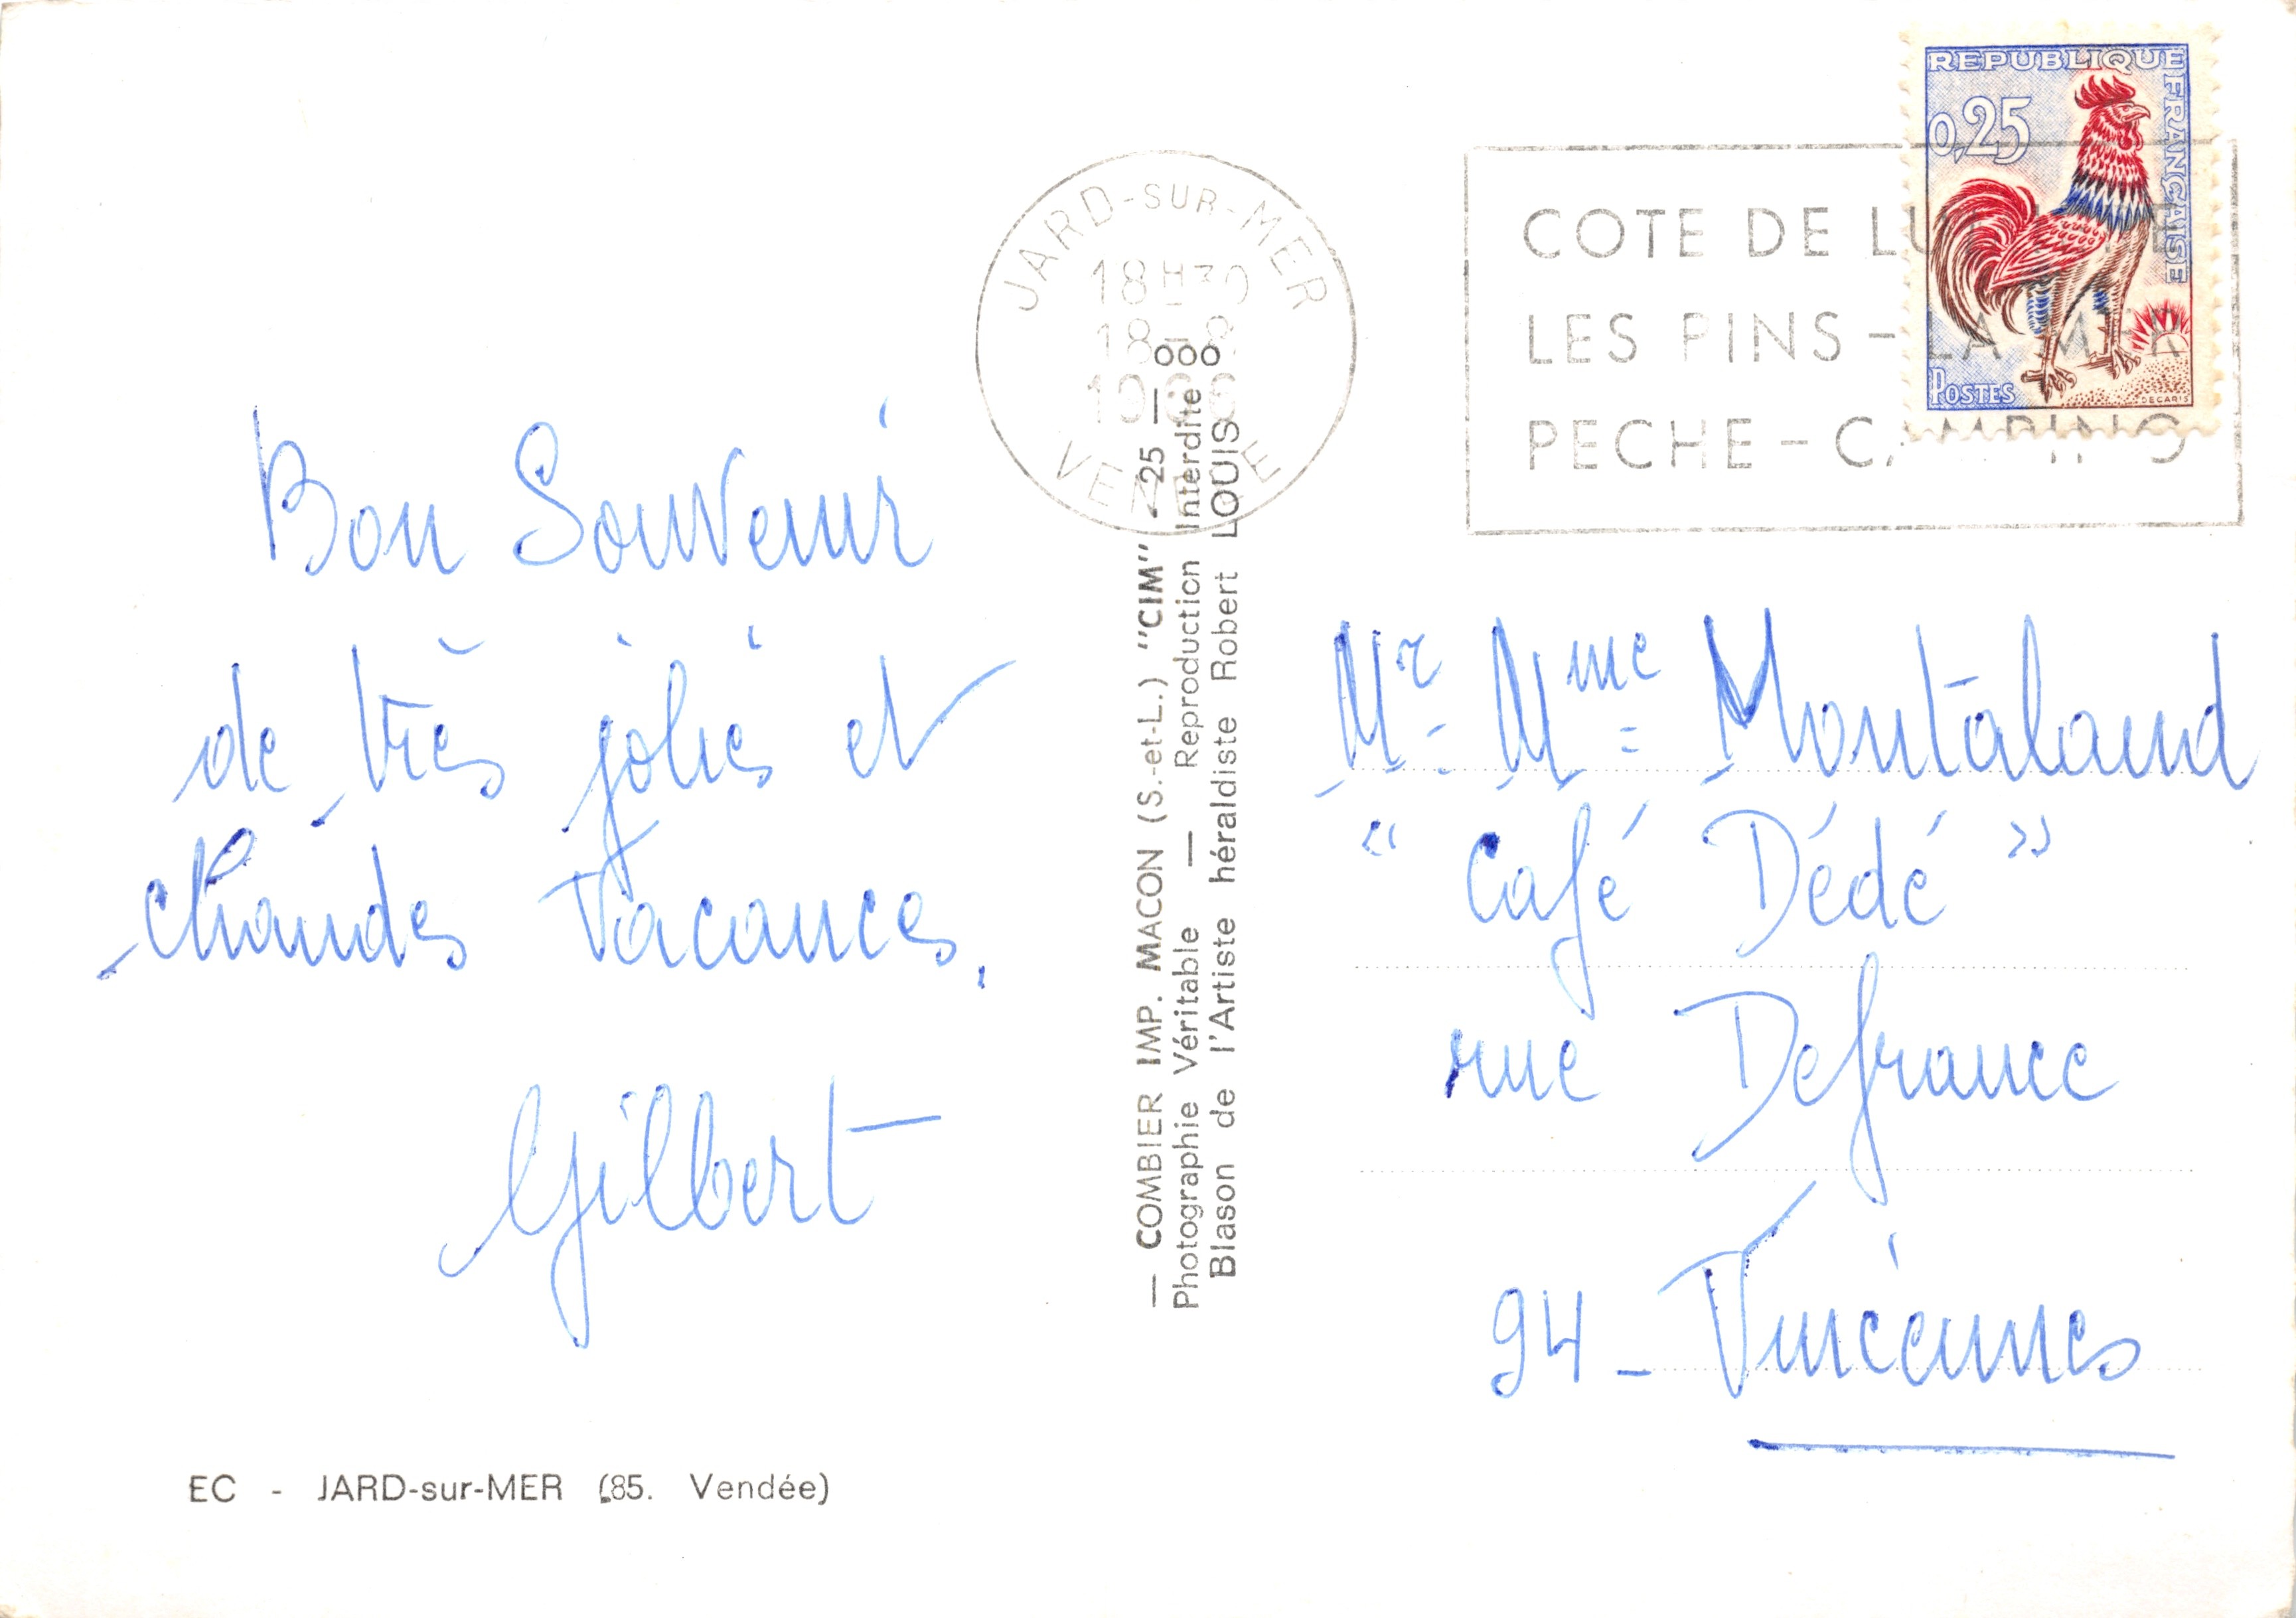 Bon Souvenir
de très jolies et
chaudes Vacances.
Gilbert
EC - JARD-sur-MER (85. Vendée)
— COMBIER IMP. MACON (S.-et-L.) "CIM" - 25 —
Photographie Véritable — Reproduction Interdite
Blason de l'Artiste héraldiste Robert LOUIS
JARD-SUR-MER
18H30
18-8
VENDEE
COTE DE LUMIERE
LES PINS - LA MER
PECHE - CAMPING
REPUBLIQUE FRANÇAISE
0,25
POSTES
DECARIS
Mr. Mme Montaland
"Café Dédé"
rue Defrance
94 - Vincennes